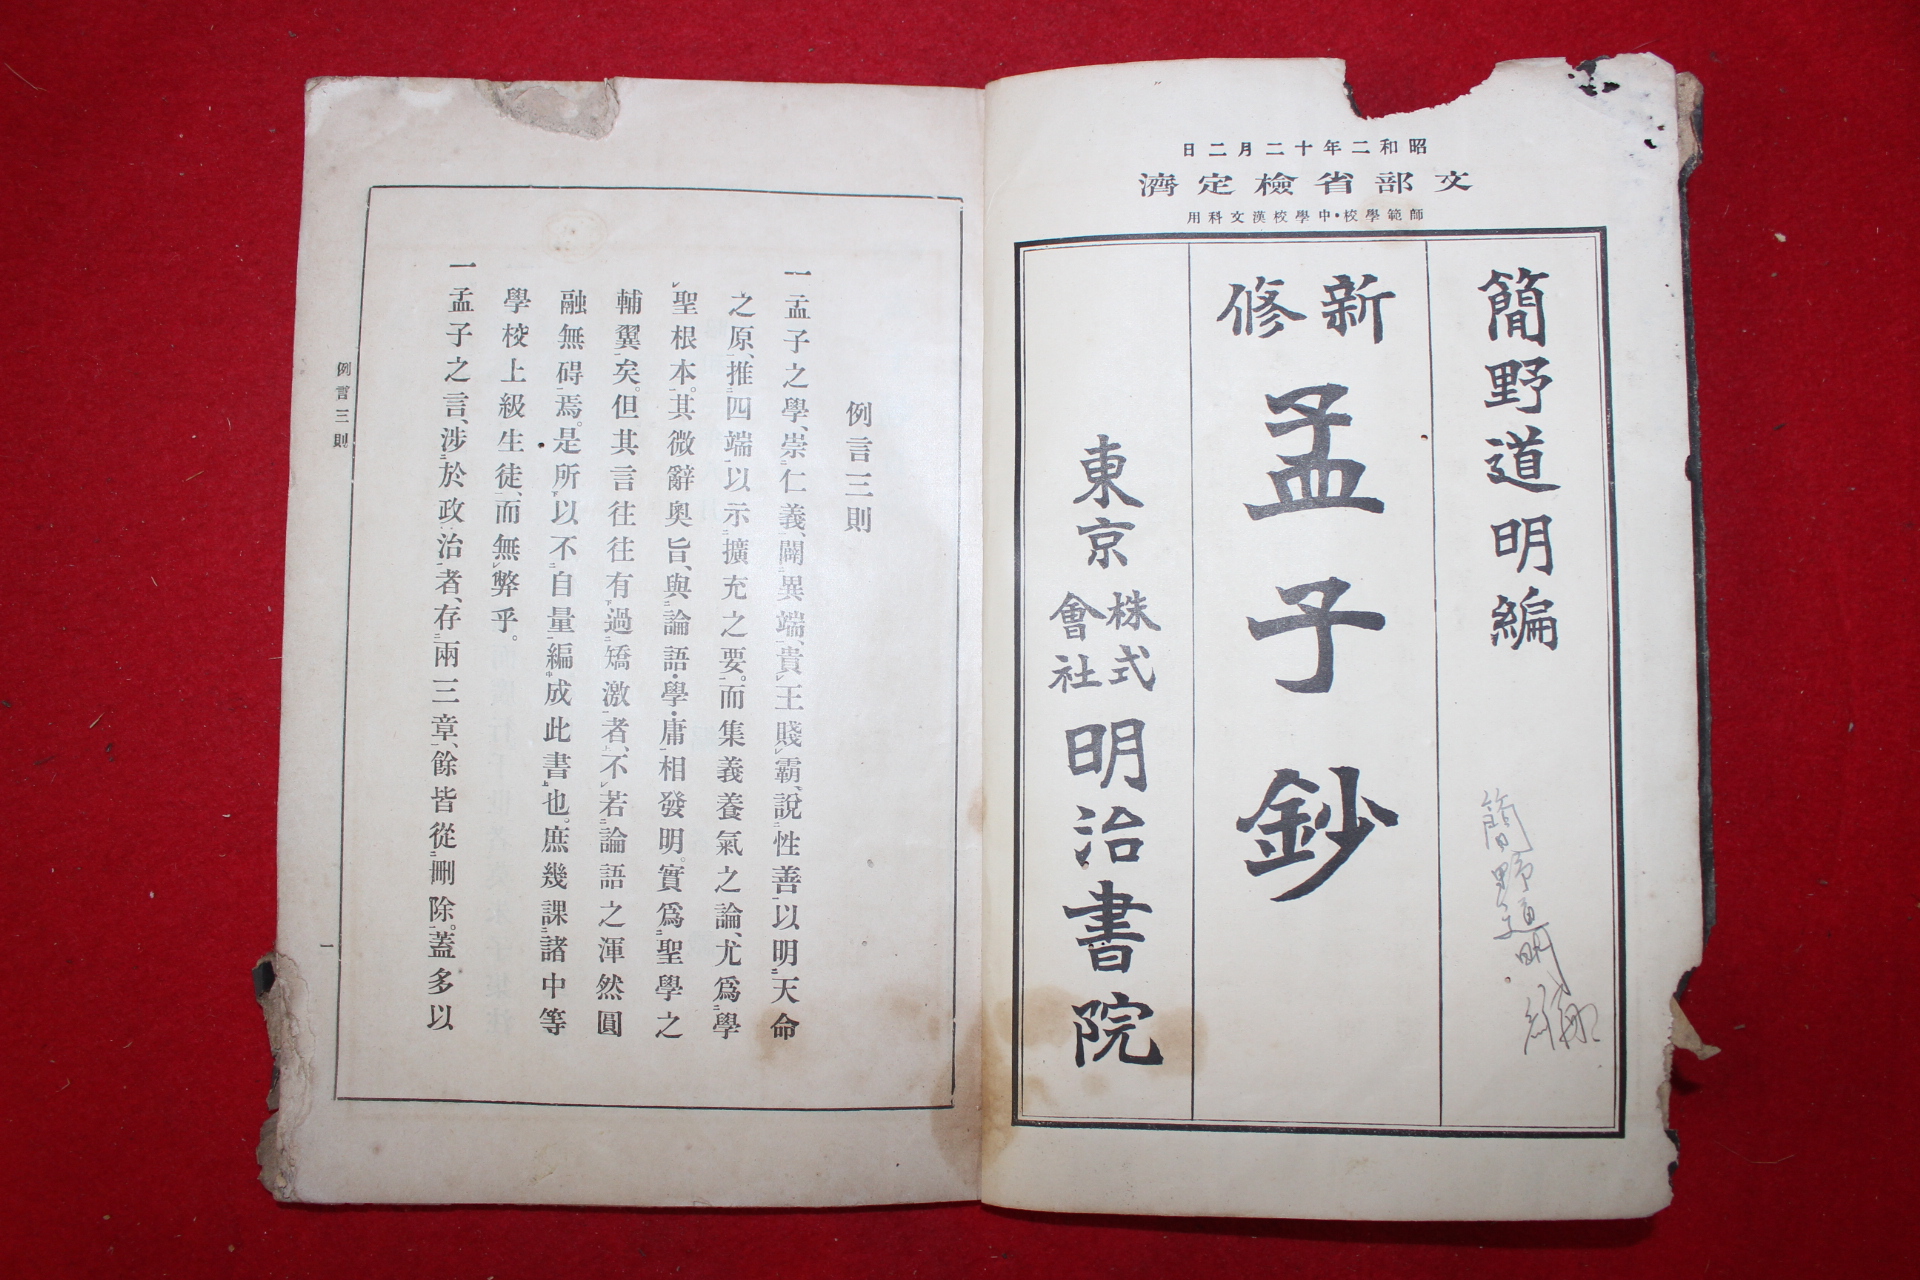 昭和二年十二月二日
文部省檢定濟
師範學校・中學校漢文科用
簡野道明編
簡野道明編
新修
孟子鈔
東京
株式會社
明治書院
例言三則
一孟子之學、崇仁義、闢異端、貴王賤霸、說性善以明天命
之原、推四端以示擴充之要。而集義養氣之論、尤爲學
聖根本。其微辭奧旨、與論語・學・庸相發明。實爲聖學之
輔翼矣。但其言往往有過矯激者、不若論語之渾然圓
融無碍焉。是所以不自量編成此書也。庶幾課諸中等
學校上級生徒、而無弊乎。
一孟子之言、涉於政治者、存兩三章、餘皆從刪除。蓋多以
例言三則
一